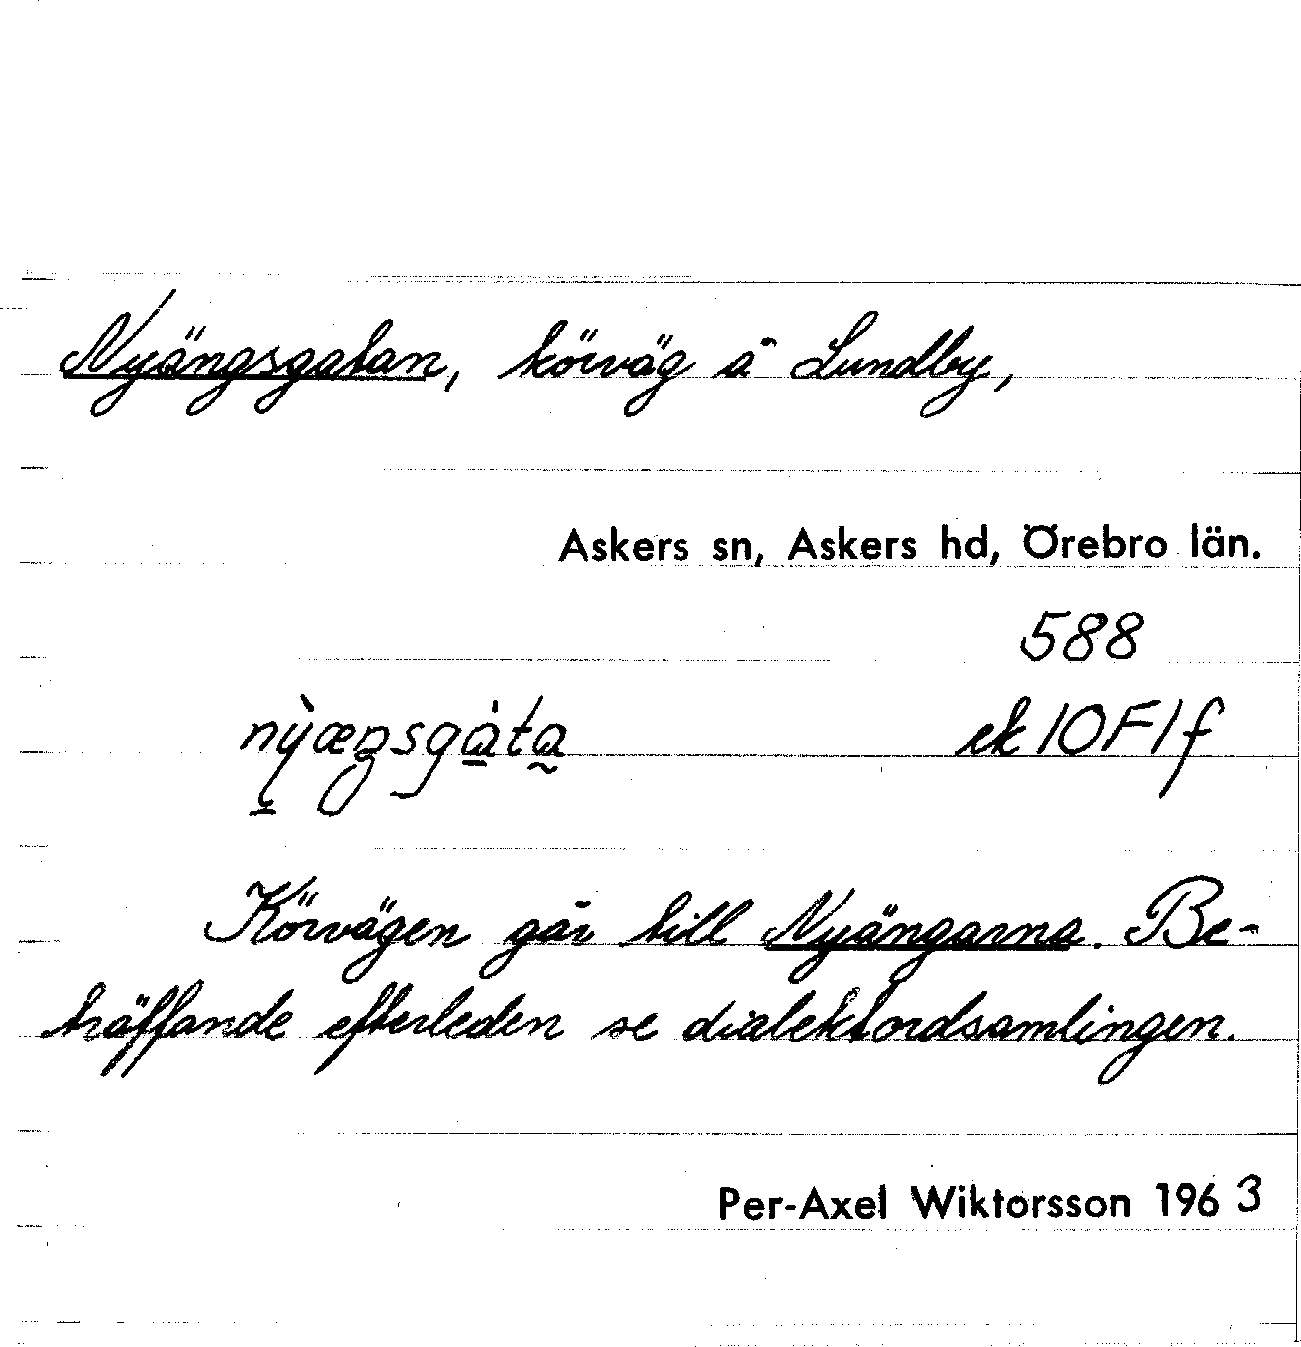 Nyängsgatan, körväg å Lundby,
Askers sn, Askers hd, Örebro län.
588
nỳæŋsgàta ek 10F1f
Körvägen går till Nyängarna. Be-
träffande efterleden se dialektordsamlingen.
Per-Axel Wiktorsson 1963